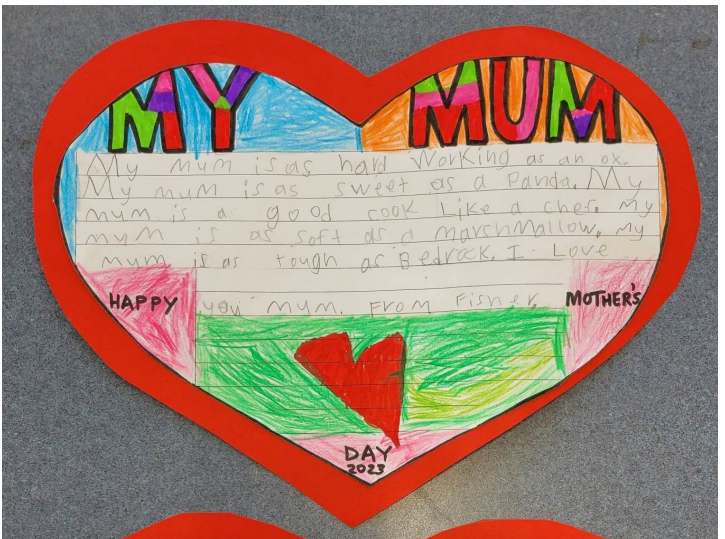 MY MUM
My mum is as hard Working as an ox.
My mum is as sweet as a Panda. My
mum is a good cook Like a chef. My
mum is as soft as a marshmallow. my
mum is as tough as Bedrock. I Love
you mum. From Fisher.
HAPPY MOTHER'S
DAY
2023